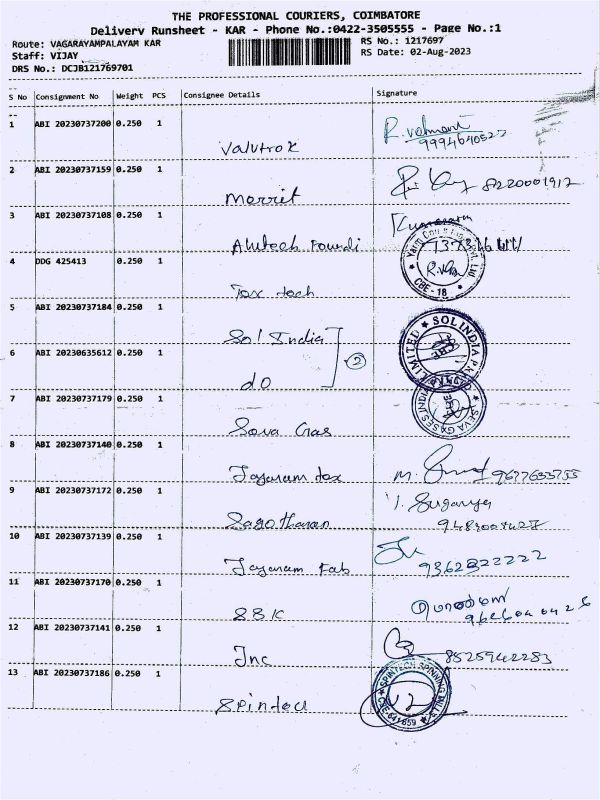 THE PROFESSIONAL COURIERS, COIMBATORE
Delivery Runsheet - KAR - Phone No.:0422-3505555 - Page No.:1
Route: VAGARAYAMPALAYAM KAR
RS No.: 1217697
Staff: VIJAY
RS Date: 02-Aug-2023
DRS No.: DCJB121769701
S No Consignment No Weight PCS Consignee Details Signature
1 ABI 20230737200 0.250 1
Valutrox
2 ABI 20230737159 0.250 1
Merrit 8220001917
3 ABI 20230737108 0.250 1
4 DDG 425413 0.250 1
Tex tech
CBE - 18
5 ABI 20230737184 0.250 1
Sol India
SOL INDIA LIMITED
6 ABI 20230635612 0.250 1
do
2
7 ABI 20230737179 0.250 1
Seva Gas
SEVA GASES INDIA
8 ABI 20230737140 0.250 1
Jayaram tex
9 ABI 20230737172 0.250 1
Sagotharan
10 ABI 20230737139 0.250 1
Jayaram Fab 9362822222
11 ABI 20230737170 0.250 1
SBK
12 ABI 20230737141 0.250 1
Jnc 8525942283
13 ABI 20230737186 0.250 1
SPINTECH SPINNING MILL
CBE-641659